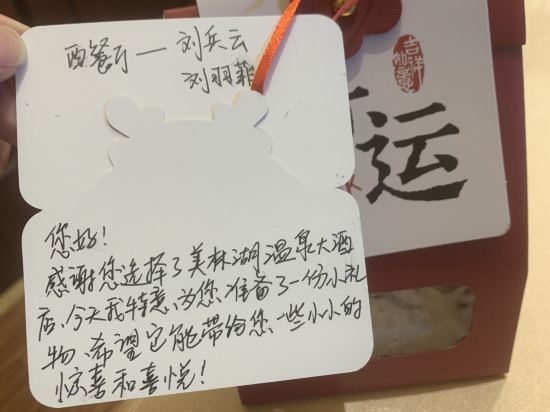 西餐厅—刘兵云
刘羽菲
您好!
感谢您选择了美林湖温泉大酒
店、今天我特意为您准备了一份小礼
物、希望它能带给您一些小小的
惊喜和喜悦!
吉祥
如意
运